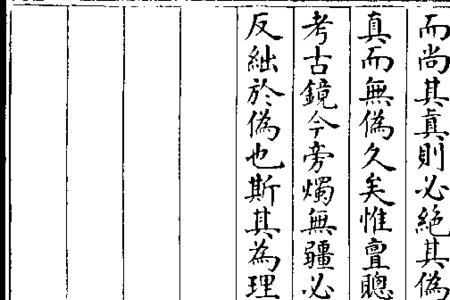 而尚其真則必絕其偽
真而無偽久矣惟亶聰
考古鏡今旁燭無疆必
反絀於偽也斯其為理